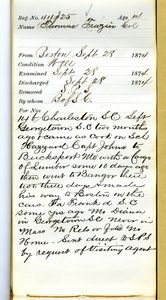 Reg. No. 111925 Age 14
Name Thomas Frazier Col
From Boston Sept 28 1874
Condition
Examined Sept 28 1874
Discharged Sept 28 1874
Removed S.P.S
By whom
Charleston SC Left
Georgetown S C two months
ago came as Cook in Sch
Hazzard Capt Johns to
Bucksport Me with a Cargo
of Lumber some 10 days ago
then went to Bangor there
two or three days & made
his way to Boston in the
cars Fa Frank d S.C
some yrs ago Mo
in Georgetown S.C Never in
Mass No Rel or frds No
Home Sent direct to S.P.S
by request of Visiting agent